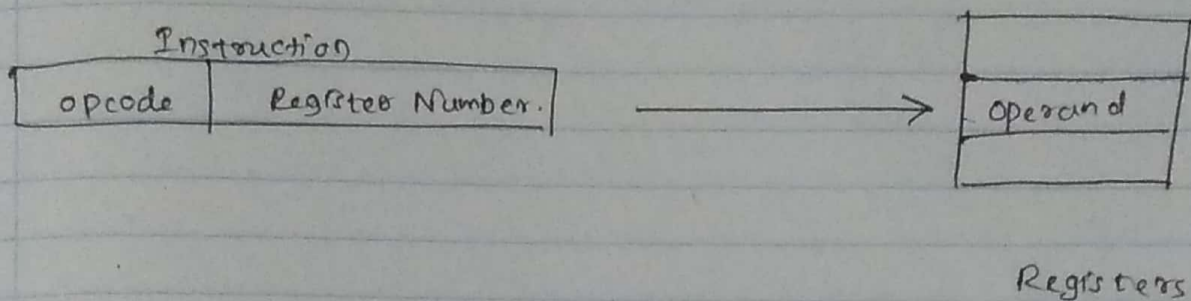 Instruction
opcode Register Number.
operand
Registers